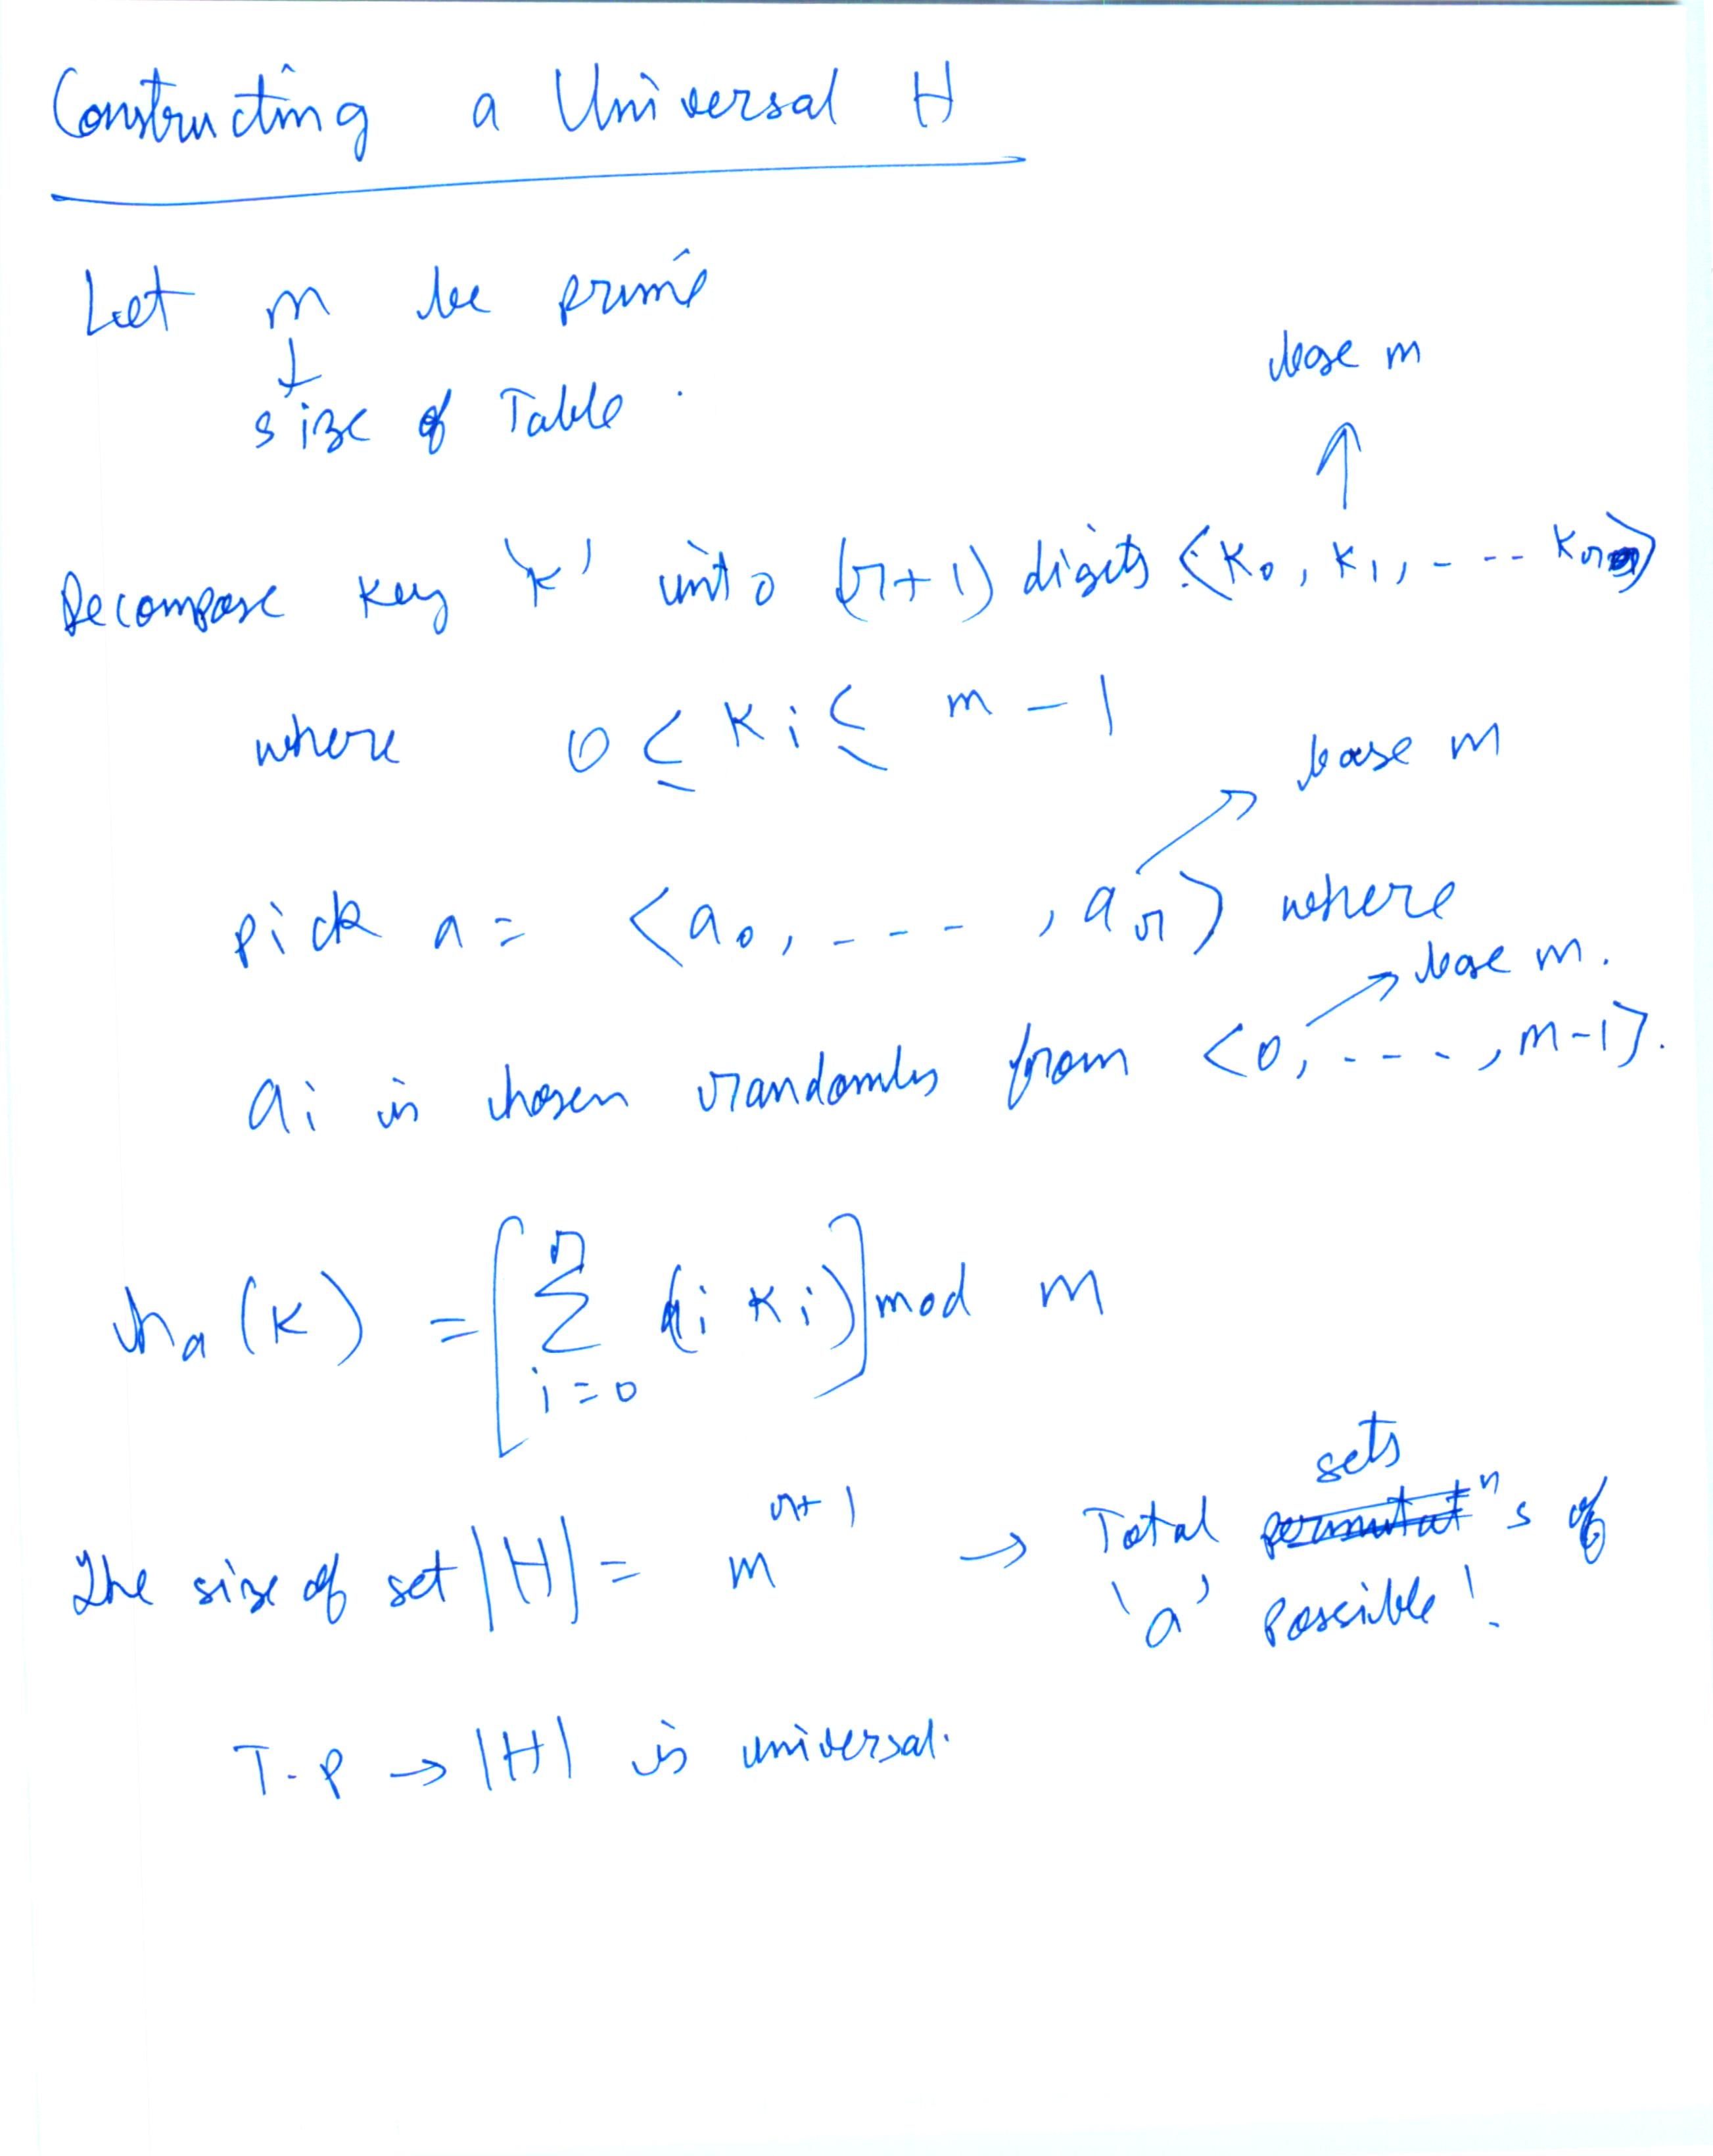 Constructing a Universal H
Let m be prime
↓
size of Table.
base m
↑
Decompose key 'k' into (r+1) digits <k0, k1, ---- kr>
where 0 ≤ ki ≤ m - 1
base m
pick a = <a0, ----, ar> where
base m.
ai is chosen randomly from <0, ----, m-1>.
ha(k) = [Σ i=0 r (ai ki)] mod m
sets
The size of set |H| = m^(r+1) → Total permutatns of
'a' possible!
T.P → |H| is universal.